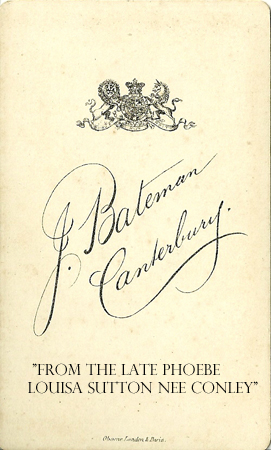 J. Bateman
Canterbury.
"FROM THE LATE PHOEBE
LOUISA SUTTON NEE CONLEY"
London & Paris.